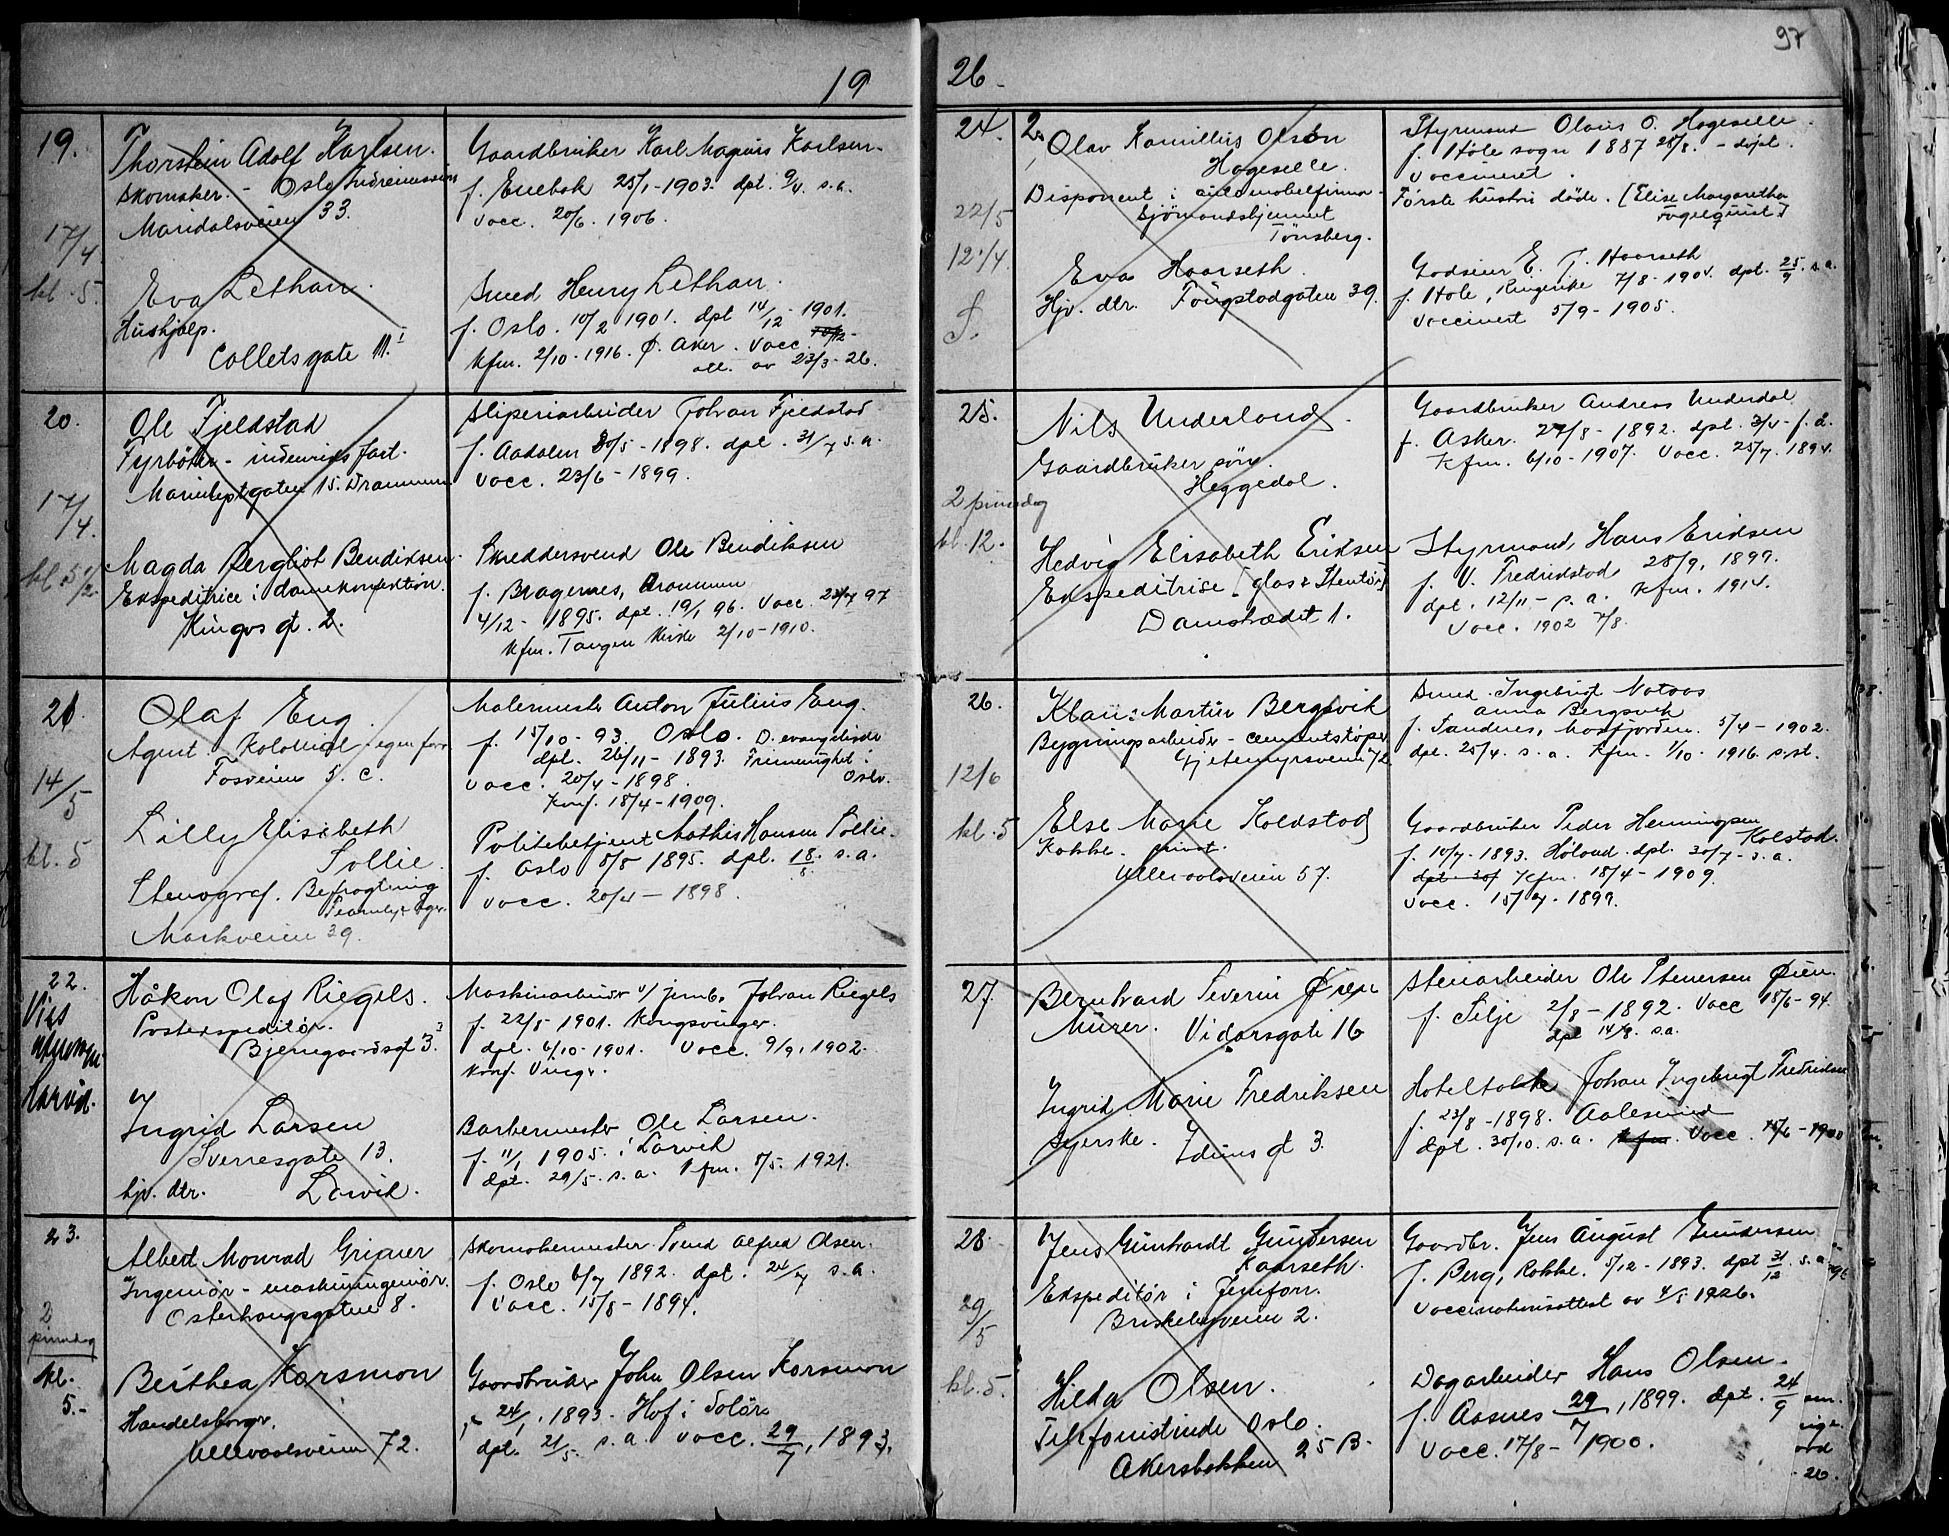 19 26.
97
19.
Thorstein Adolf Karlsen.
Skomaker. - Oslo Indremission
Maridalsveien 33.
17/4
kl. 5.
Eva Lethan.
Hushjælp.
Collets gate
Gaardbruker Karl Magnus Karlsen.
f. Enebak 25/1-1903. dpt. s.a.
Vacc. 20/6 1906.
Smed Henry Lethan.
f. Oslo. 10/2 1901. dpt 14/12 - 1901.
Kfm. 2/10-1916. Ø. Aker. Vacc.
att. av 23/3-26.
20.
Ole Fjeldstad
Fyrbøter - indenriks fart.
15. Drammen
17/4
kl. 5 1/2
Magda Bergliot Bendiksen.
Ekspeditrice i damekonfektion.
Kingos gt. 2.
Sliperiarbeider Johan Fjeldstad
f. Aadalen 30/5-1898. dpt. 31/7 s.a.
Vacc. 23/6-1899.
Skreddersvend Ole Bendiksen
f. Bragernes, Drammen
4/12-1895. dpt. 19/1 96. Vacc. 97
Kfm. Tangen Kirke 2/10-1910.
21.
Olaf Eng.
Agent. Kolonial - egen forr.
Fosveien 5. C.
14/5
kl. 5
Lilly Elisabeth
Sollie.
Stenograf. Befragtning
Fearnley & Eger.
Markveien 39.
Malermester Anton Julius Eng.
f. 15/10-93. Oslo. D. evangeliske
dpt. 26/11-1893. Frimenighet i
Vacc. 20/4-1898. Oslo.
Konf. 18/4-1909.
Politibetjent Mathis Hansen Sollie.
f. Oslo 5/5 1895. dpt. 18/8. s.a.
Vacc. 20/4-1898.
22.
Vies
Larvik.
Håkon Olaf Riegels.
Postekspeditør.
Bjerregaardsgt 3.
Ingrid Larsen
Sverresgate 13.
hjv. dtr. Larvik.
Maskinarbeider v/ jernb. Johan Riegels
f. 22/5-1901. Kongsvinger.
dpt. 6/10-1901. Vacc. 9/9, 1902.
Konf. Vinger.
Barbermester Ole Larsen.
f. 11/1 1905. i Larvik
dpt. 29/5. s.a. Kfm. 8/5. 1921.
23.
Albert Monrad Griner
Ingeniør - maskiningeniør.
Osterhausgaten 8.
2
pinsedag
kl.
5.-
Berthea Korsmon
Handelsborger.
Ullevaalsveien 72.
Skomakermester Svend Alfred Olsen.
f. Oslo 6/7 1892. dpt. 24/7 s.a.
Vacc. 15/8-1894.
Gaardbruker John Olsen Korsmon
f. 24/1, 1893. Hof i Solør
dpt. 21/5. s.a. Vacc. 29/7, 1893.
24.
Olav Kamillius Olsen
Hageselle.
Disponent i automobilfirma -
Sjømandshjemmet
Tønsberg.
22/5
12 1/4
Eva Haarseth.
Hjv. dtr. Fougstadgaten 39.
Styrmand Olaus O. Hageselle.
f. Hole sogn 1887 28/8. - døpt.
Vaccineret.
Første hustru døde. [Elise Margaretha
Fogelquist]
Godseier E. J. Haarseth
f. Hole, Ringerike 7/8-1904. dpt. 25/9. s.a.
Vaccinert 5/9-1905.
25.
Nils Underland.
Gaardbruker søn.
Heggedal.
2 pinsedag
kl. 12.
Hedvig Elisabeth Eriksen
Ekspeditrise [glas & Stentøi]
Damstrædet 1.
Gaardbruker Andreas Underdal
f. Asker. 27/8-1892. dpt. 3/4-f. a.
Kfm. 6/10-1907. Vacc. 25/7. 1894.
Styrmand, Hans Eriksen
f. V. Fredrikstad 28/9, 1899.
dpt. 12/11-s.a. Kfm. 1914.
Vacc. 1902 7/8.
26.
Klaus Martin Bergsvik
Bygningsarbeider - cementstøper
Gjetemyrsveien 72
12/6
kl. 5
Else Marie Koldstad
Kokke. privat.
Ullevaalsveien 57.
Smed Ingebrigt
Anna Bergsvik
f. Sandnes, 5/4-1902.
dpt. 25/4. s.a. Kfm. 1/10-1916 s.st.
Gaardbruker Peder Henningsen
Kolstad.
f. 10/7-1893. Høland. dpt. 30/7-s.a.
dpt. 30/ Kfm. 18/4-1909.
Vacc. 15/7-1899.
27.
Bernhard Severin Øien
Murer. Vidarsgate 16
Ingrid Marie Fredriksen
Syerske. Iduns gt 3.
Stenarbeider Ole Stenersen Øien.
f. Silje 2/8-1892. Vacc 18/6-94.
dpt 14/8. s.a.
Hoteltolk Johan Ingebrigt Fredriksen
f. 23/8-1898. Aalesund
dpt. 30/10. s.a. Kfm. Vacc. -1900
28.
Jens Gunhardt Gundersen
Kaarseth.
Ekspeditør i
Briskebyveien 2.
29/5
kl. 5.
Hilda Olsen.
Telefonistinde Oslo.
Akersbakken 25 B.
Gaardbr. Jens August Gundersen
f. Berg, Rokke. 5/12-1893. dpt 31/12 s.a.
Vaccinationsattest av 4/5 1926.
Dagarbeider Hans Olsen.
f. Aasnes 29/7, 1899. dpt. 24/9
Vacc. 17/8-1900.